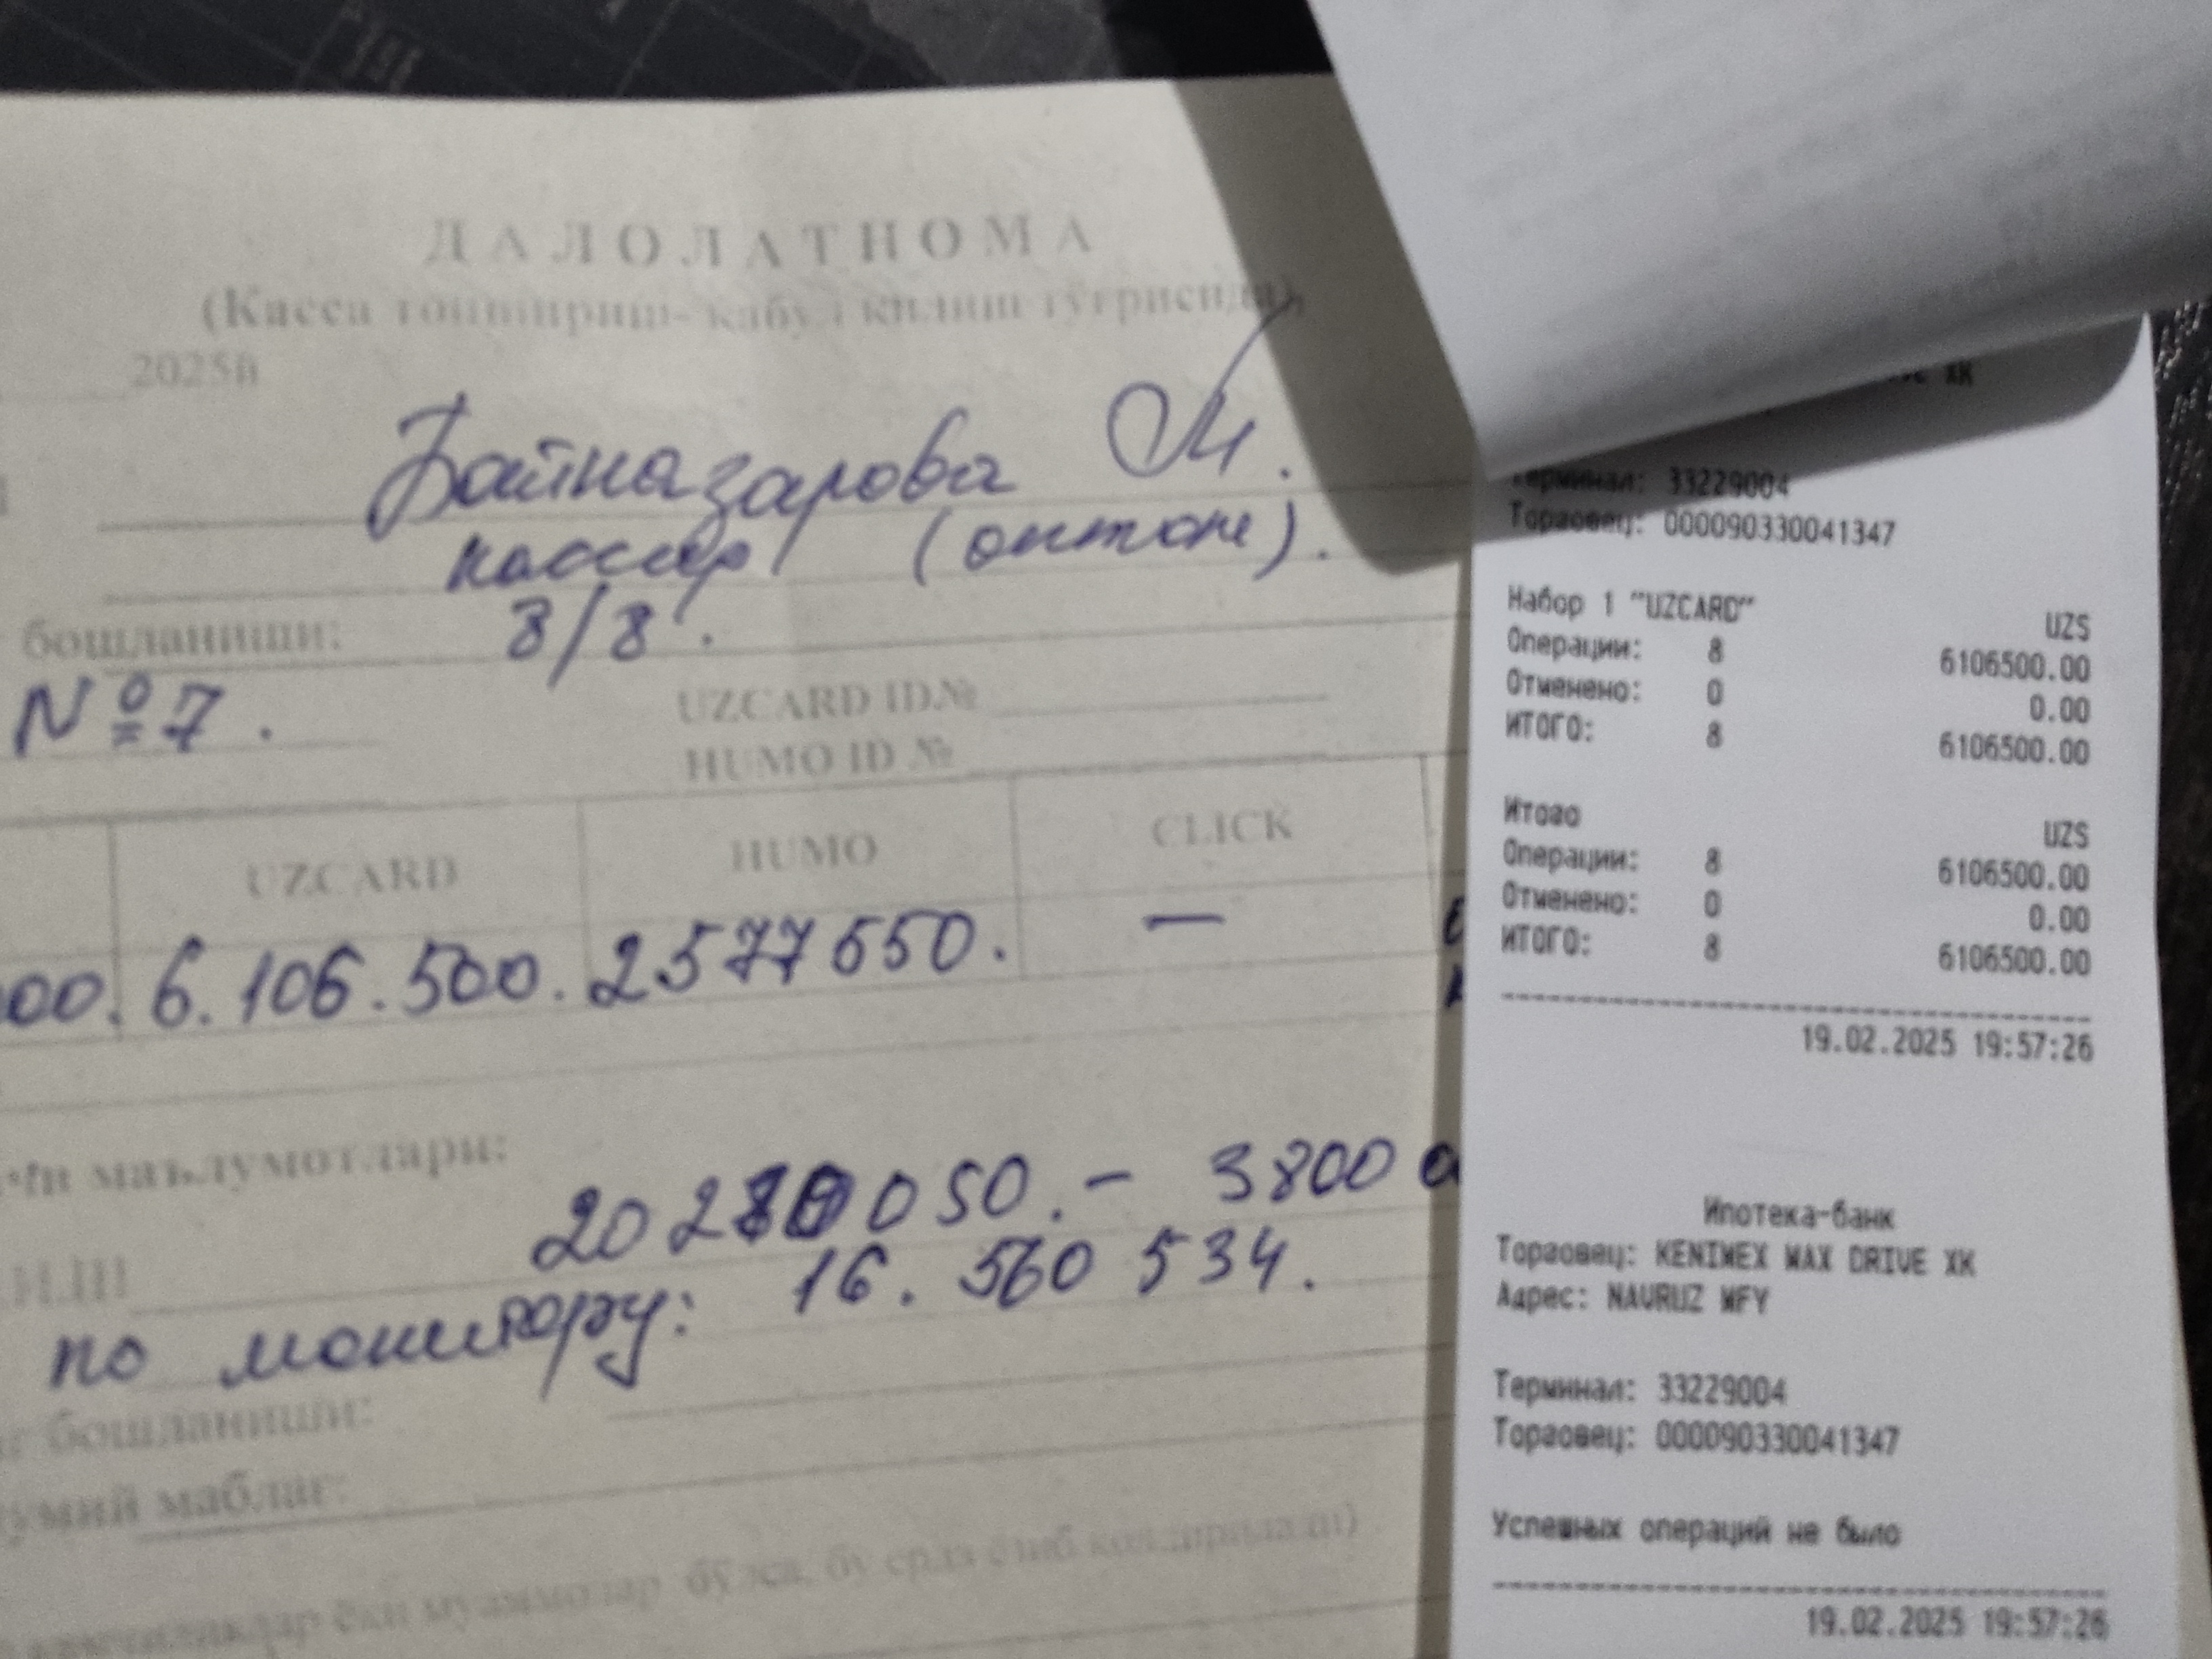 ДАЛОЛАТНОМА
(Касса топшириш- қабул қилиш тўғрисида)
2025й
Байназарова М.
кассир (оптом).
бошланиши: 8/8.
№7.
UZCARD ID.№
HUMO ID №
UZCARD HUMO CLICK
00. 6.106.500. 2577650. —
маълумотлари:
050. - 3800
по монитору: 16.560 534.
бошланиши:
умий маблағ:
ёки муаммолар бўлса, бу ерда ёзиб қолдирилади)
ХК
Терминал: 33229004
Торговец: 000090330041347
Набор 1 "UZCARD"
UZS
Операции: 8 6106500.00
Отменено: 0 0.00
ИТОГО: 8 6106500.00
Итого
UZS
Операции: 8 6106500.00
Отменено: 0 0.00
ИТОГО: 8 6106500.00
19.02.2025 19:57:26
Ипотека-банк
Торговец: KENIMEX MAX DRIVE XK
Адрес: NAVRUZ MFY
Терминал: 33229004
Торговец: 000090330041347
Успешных операций не было
19.02.2025 19:57:26